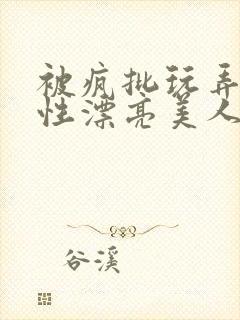 被疯批玩弄
性漂亮美人
谷溪